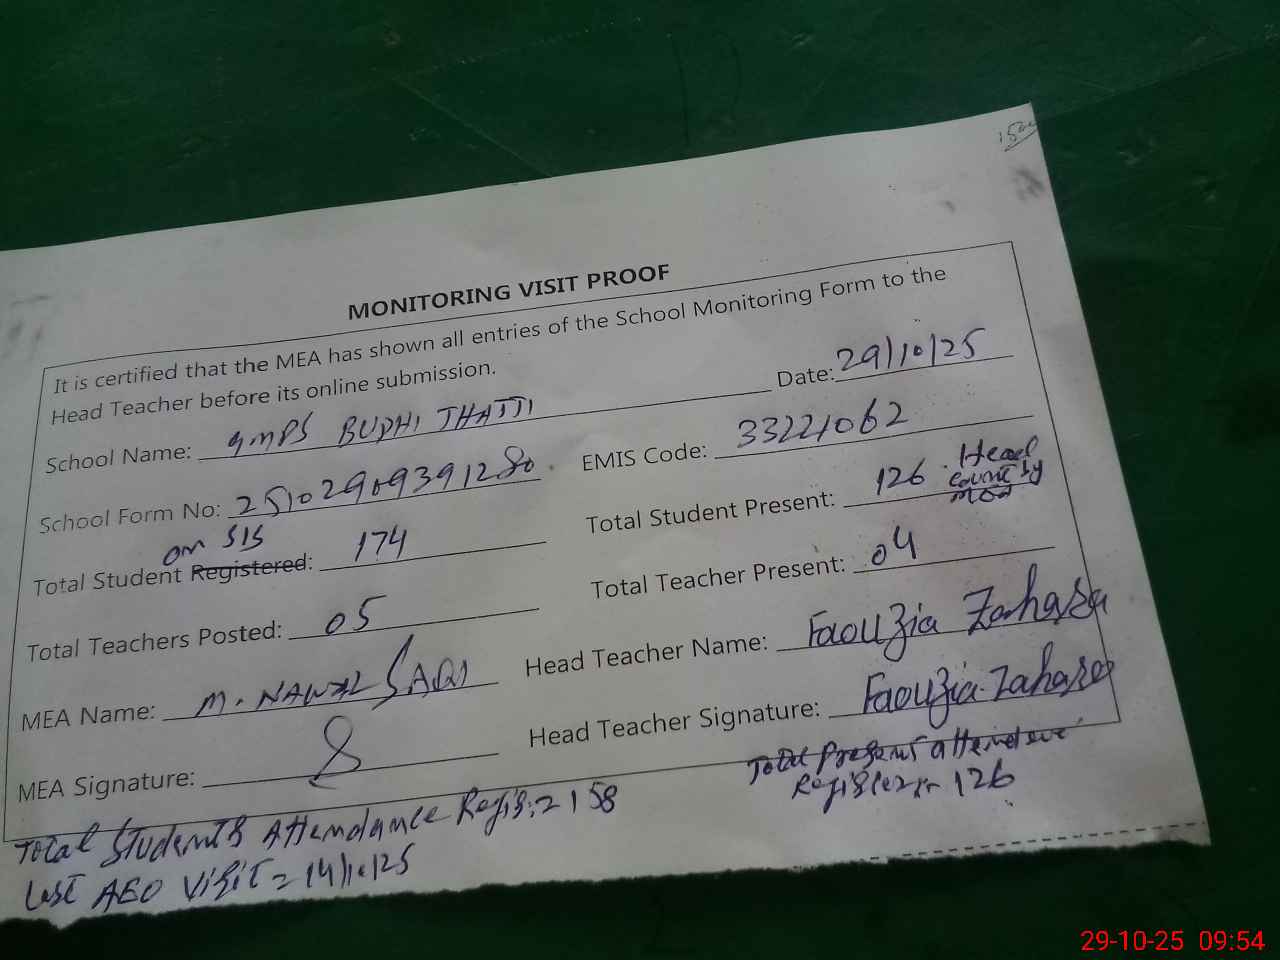 MONITORING VISIT PROOF
It is certified that the MEA has shown all entries of the School Monitoring Form to the
Head Teacher before its online submission.
Date: 29/10/25
School Name: GMPS BUDHI THATTI
EMIS Code: 33221062
School Form No: 25102909391280
on SIS
Total Student Present: 126 Head
count by
Total Student Registered: 174
Total Teacher Present: 04
Total Teachers Posted: 05
Head Teacher Name: Faouzia Zahara
MEA Name: M. NAWAZ SAQI
Head Teacher Signature: Faouzia Zahara
MEA Signature:
Total Present attendence
Register = 126
Total Students Attendance Regis: = 158
Last AEO Visit = 14/10/25
29-10-25 09:54